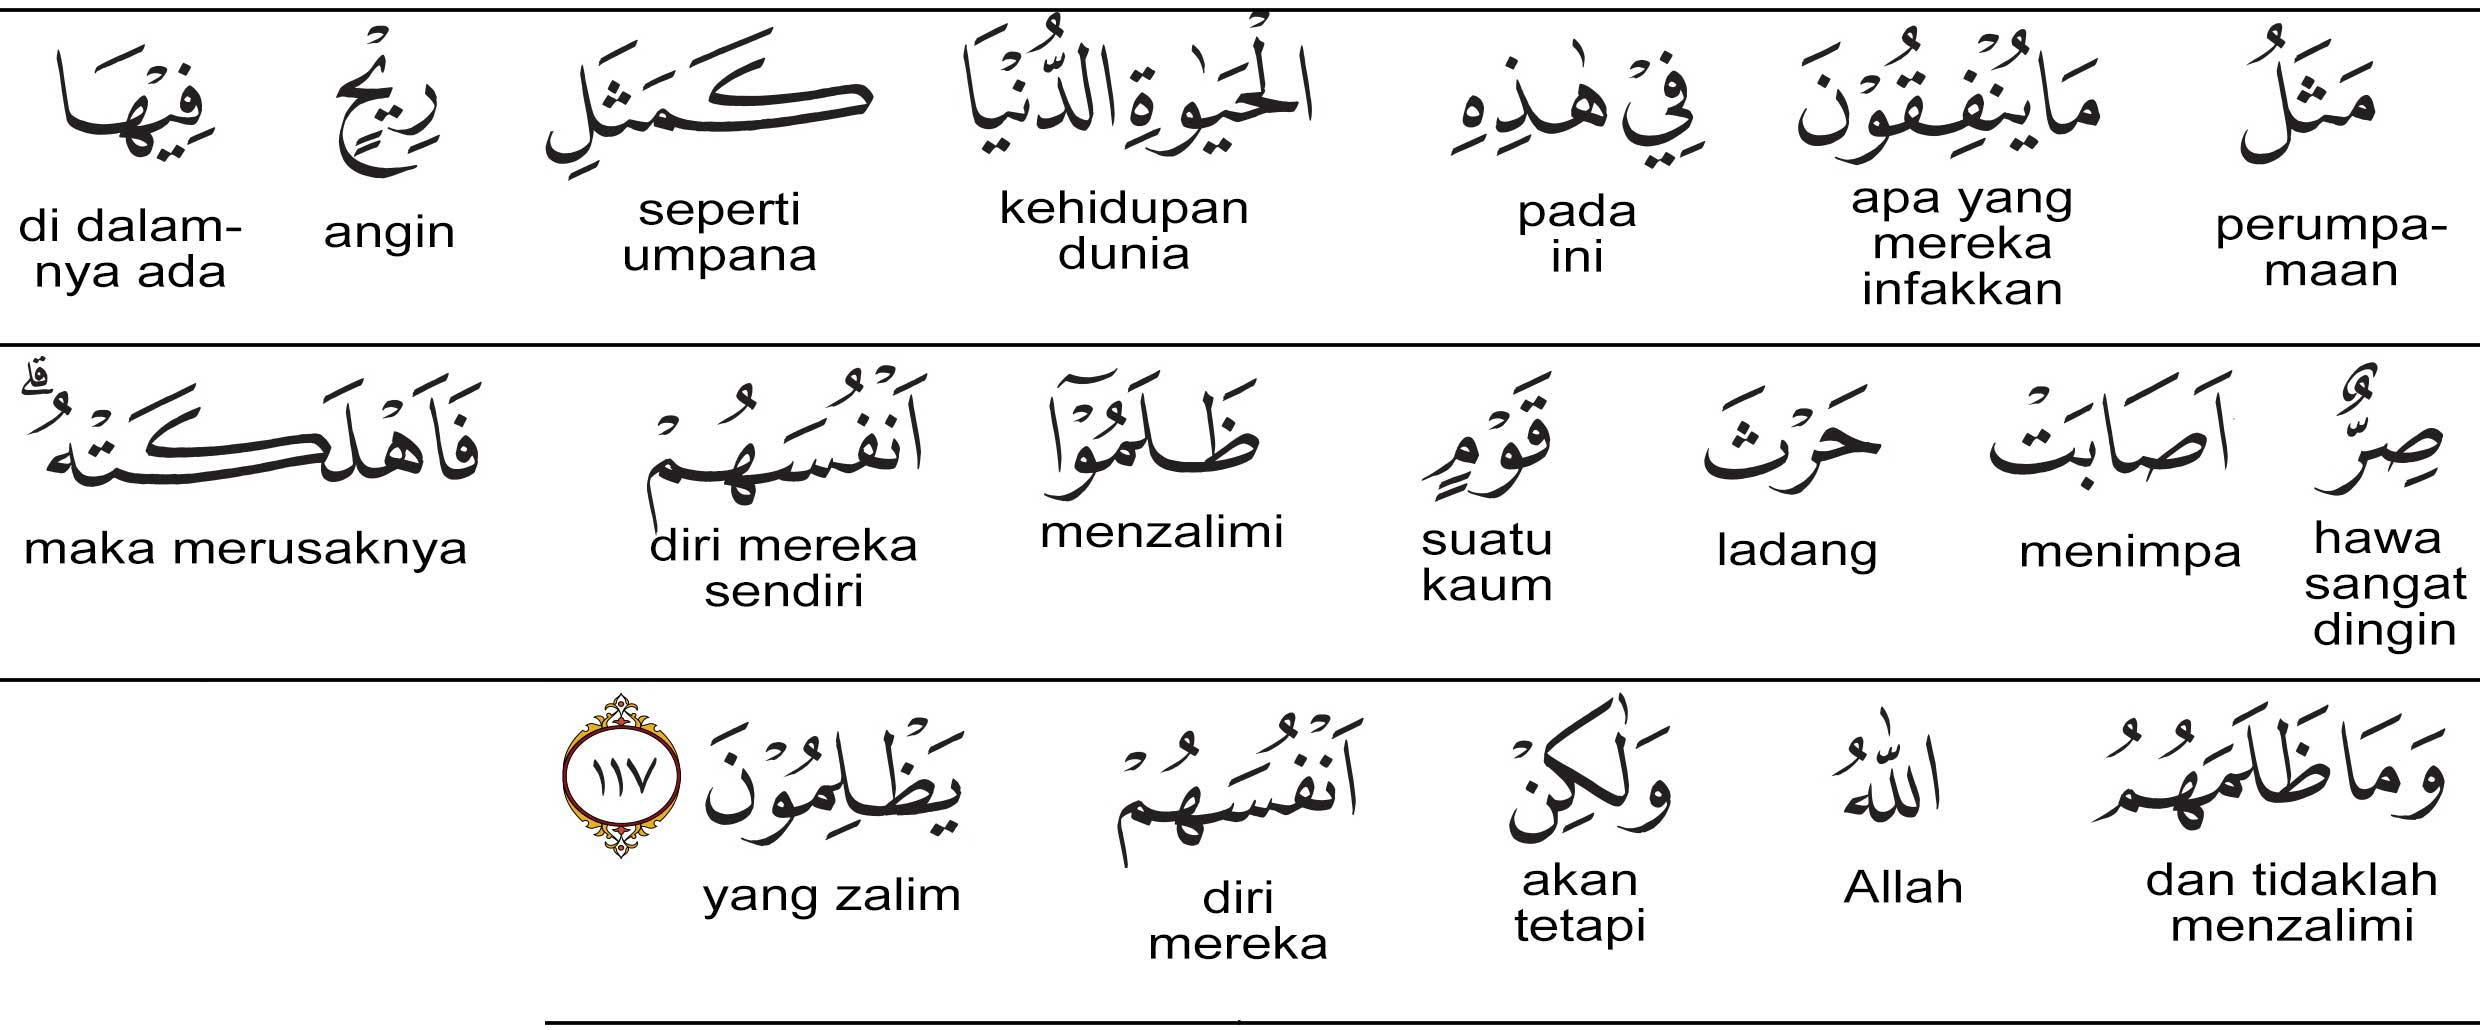 مَثَلُ مَا يُنْفِقُوْنَ فِيْ هٰذِهِ الْحَيٰوةِ الدُّنْيَا كَمَثَلِ رِيْحٍ فِيْهَا
perumpa-maan apa yang mereka infakkan pada ini kehidupan dunia seperti umpana angin di dalam-nya ada
صِرٌّ اَصَابَتْ حَرْثَ قَوْمٍ ظَلَمُوْٓا اَنْفُسَهُمْ فَاَهْلَكَتْهُ ۗ
hawa sangat dingin menimpa ladang suatu kaum menzalimi diri mereka sendiri maka merusaknya
وَمَا ظَلَمَهُمُ اللّٰهُ وَلٰكِنْ اَنْفُسَهُمْ يَظْلِمُوْنَ ١١٧
dan tidaklah menzalimi Allah akan tetapi diri mereka yang zalim